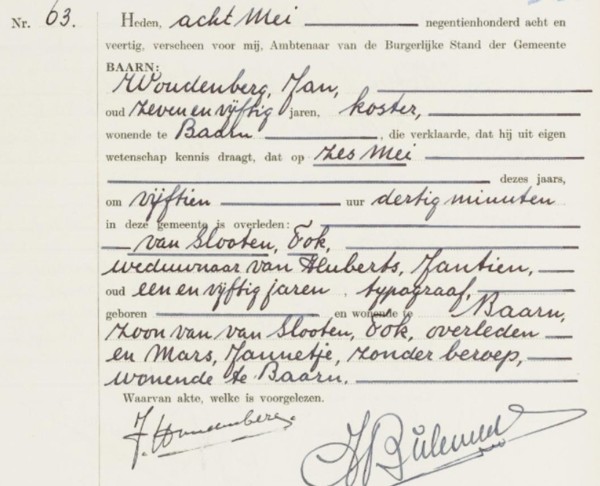 Nr. 63. Heden, acht Mei negentienhonderd acht en
veertig, verscheen voor mij, Ambtenaar van de Burgerlijke Stand der Gemeente
BAARN:
Woudenberg, Jan,
oud zeven en vijftig jaren, koster,
wonende te Baarn, die verklaarde, dat hij uit eigen
wetenschap kennis draagt, dat op zes Mei
dezes jaars,
om vijftien uur dertig minuten
in deze gemeente is overleden:
van Slooten, Fok,
weduwnaar van Huberts, Jantien,
oud een en vijftig jaren, typograaf,
geboren en wonende te Baarn,
zoon van van Slooten, Fok, overleden
en Mars, Jannetje, zonder beroep,
wonende te Baarn.
Waarvan akte, welke is voorgelezen.
J. Woudenberg.